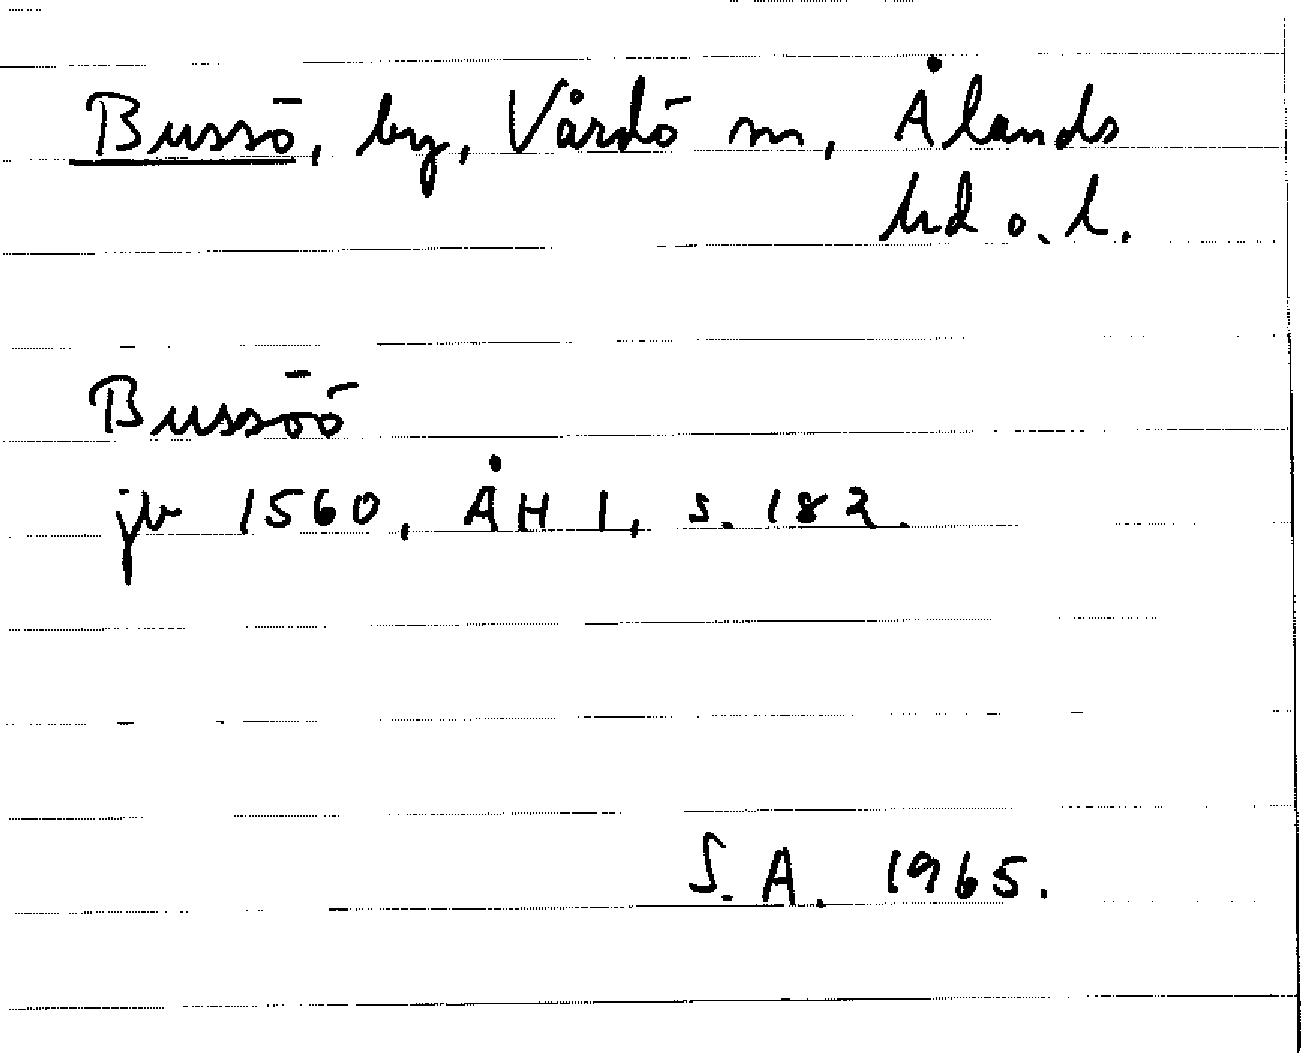 Bussö, by, Vårdö sn, Ålands
hd o. l.
Bussöö
jb 1560, ÅH I, s. 182.
S. A. 1965.